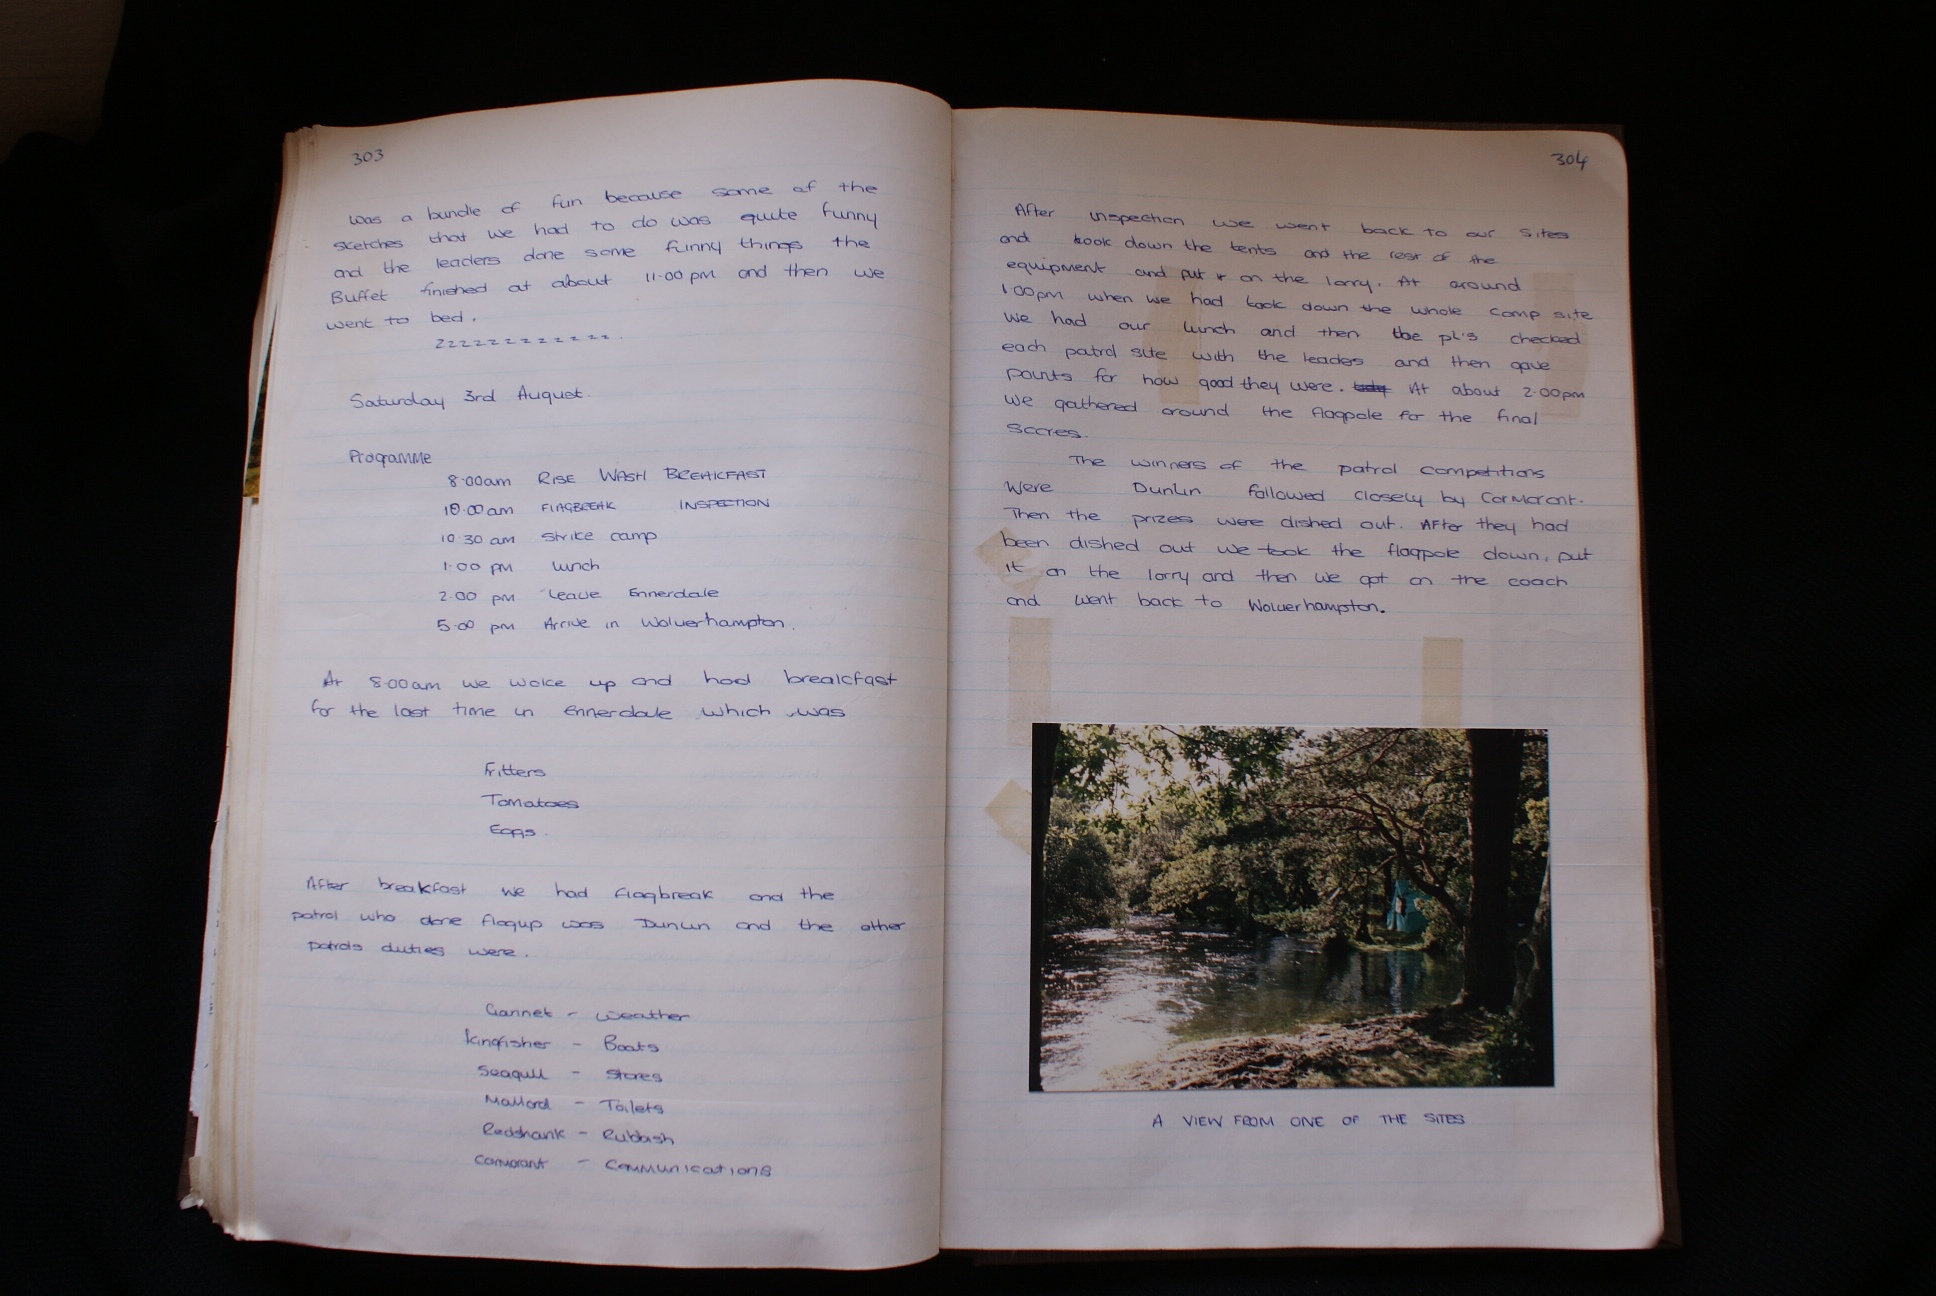 303
was a bundle of fun because some of the
sketches that we had to do was quite funny
and the leaders done some funny things the
Buffet finished at about 11.00 pm and then we
went to bed.
zzzzzzzzzzzz.
Saturday 3rd August.
Programme
8.00am RISE WASH BREAKFAST
10.00am FLAGBREAK INSPECTION
10.30 am strike camp
1.00 pm lunch
2.00 pm leave Ennerdale
5.00 pm Arrive in Wolverhampton.
At 8.00am we woke up and had breakfast
for the last time in Ennerdale which was
Fritters
Tomatoes
Eggs.
After breakfast we had flagbreak and the
patrol who done flagup was Dunlin and the other
patrols duties were.
Gannet - weather
kingfisher - Boats
Seagull - Stores
Mallard - Toilets
Redshank - Rubbish
Cormorant - Communications
304
After inspection we went back to our sites
and took down the tents and the rest of the
equipment and put it on the lorry. At around
1.00pm when we had took down the whole camp site
we had our lunch and then the pl's checked
each patrol site with the leaders and then gave
points for how good they were. At about 2.00pm
we gathered around the flagpole for the final
scores.
The winners of the patrol competitions
were Dunlin followed closely by Cormorant.
Then the prizes were dished out. After they had
been dished out we took the flagpole down, put
it on the lorry and then we got on the coach
and went back to Wolverhampton.
A VIEW FROM ONE OF THE SITES